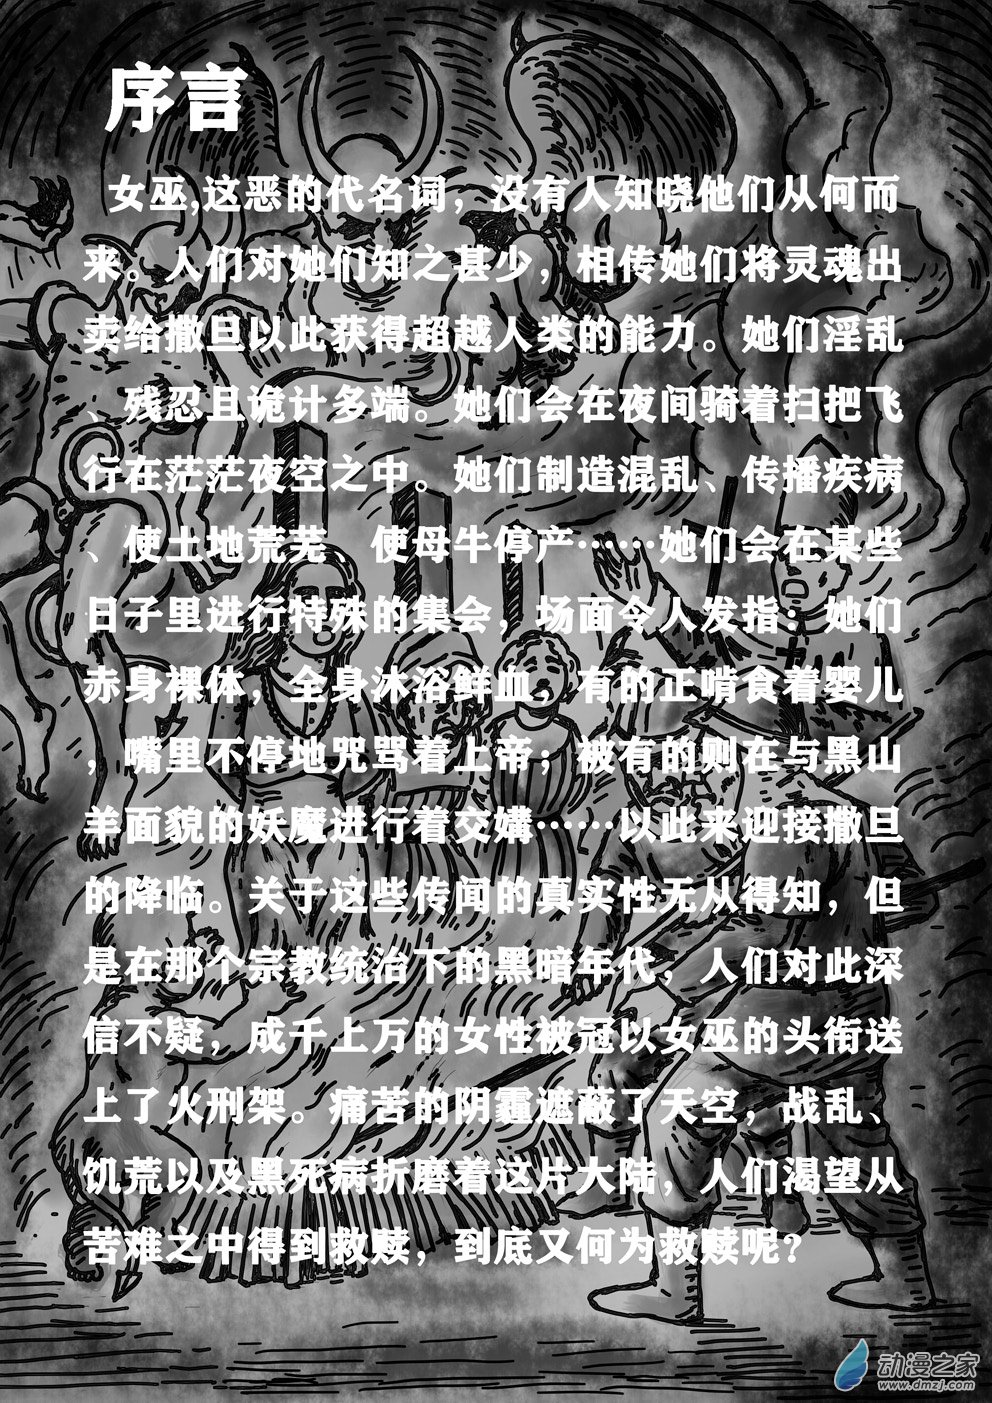 序言
女巫,这恶的代名词，没有人知晓他们从何而
来。人们对她们知之甚少，相传她们将灵魂出
卖给撒旦以此获得超越人类的能力。她们淫乱
、残忍且诡计多端。她们会在夜间骑着扫把飞
行在茫茫夜空之中。她们制造混乱、传播疾病
、使土地荒芜　使母牛停产……她们会在某些
日子里进行特殊的集会，场面令人发指：她们
赤身裸体，全身沐浴鲜血，有的正啃食着婴儿
，嘴里不停地咒骂着上帝；被有的则在与黑山
羊面貌的妖魔进行着交媾……以此来迎接撒旦
的降临。关于这些传闻的真实性无从得知，但
是在那个宗教统治下的黑暗年代，人们对此深
信不疑，成千上万的女性被冠以女巫的头衔送
上了火刑架。痛苦的阴霾遮蔽了天空，战乱、
饥荒以及黑死病折磨着这片大陆，人们渴望从
苦难之中得到救赎，到底又何为救赎呢？
动漫之家
www.dmzj.com